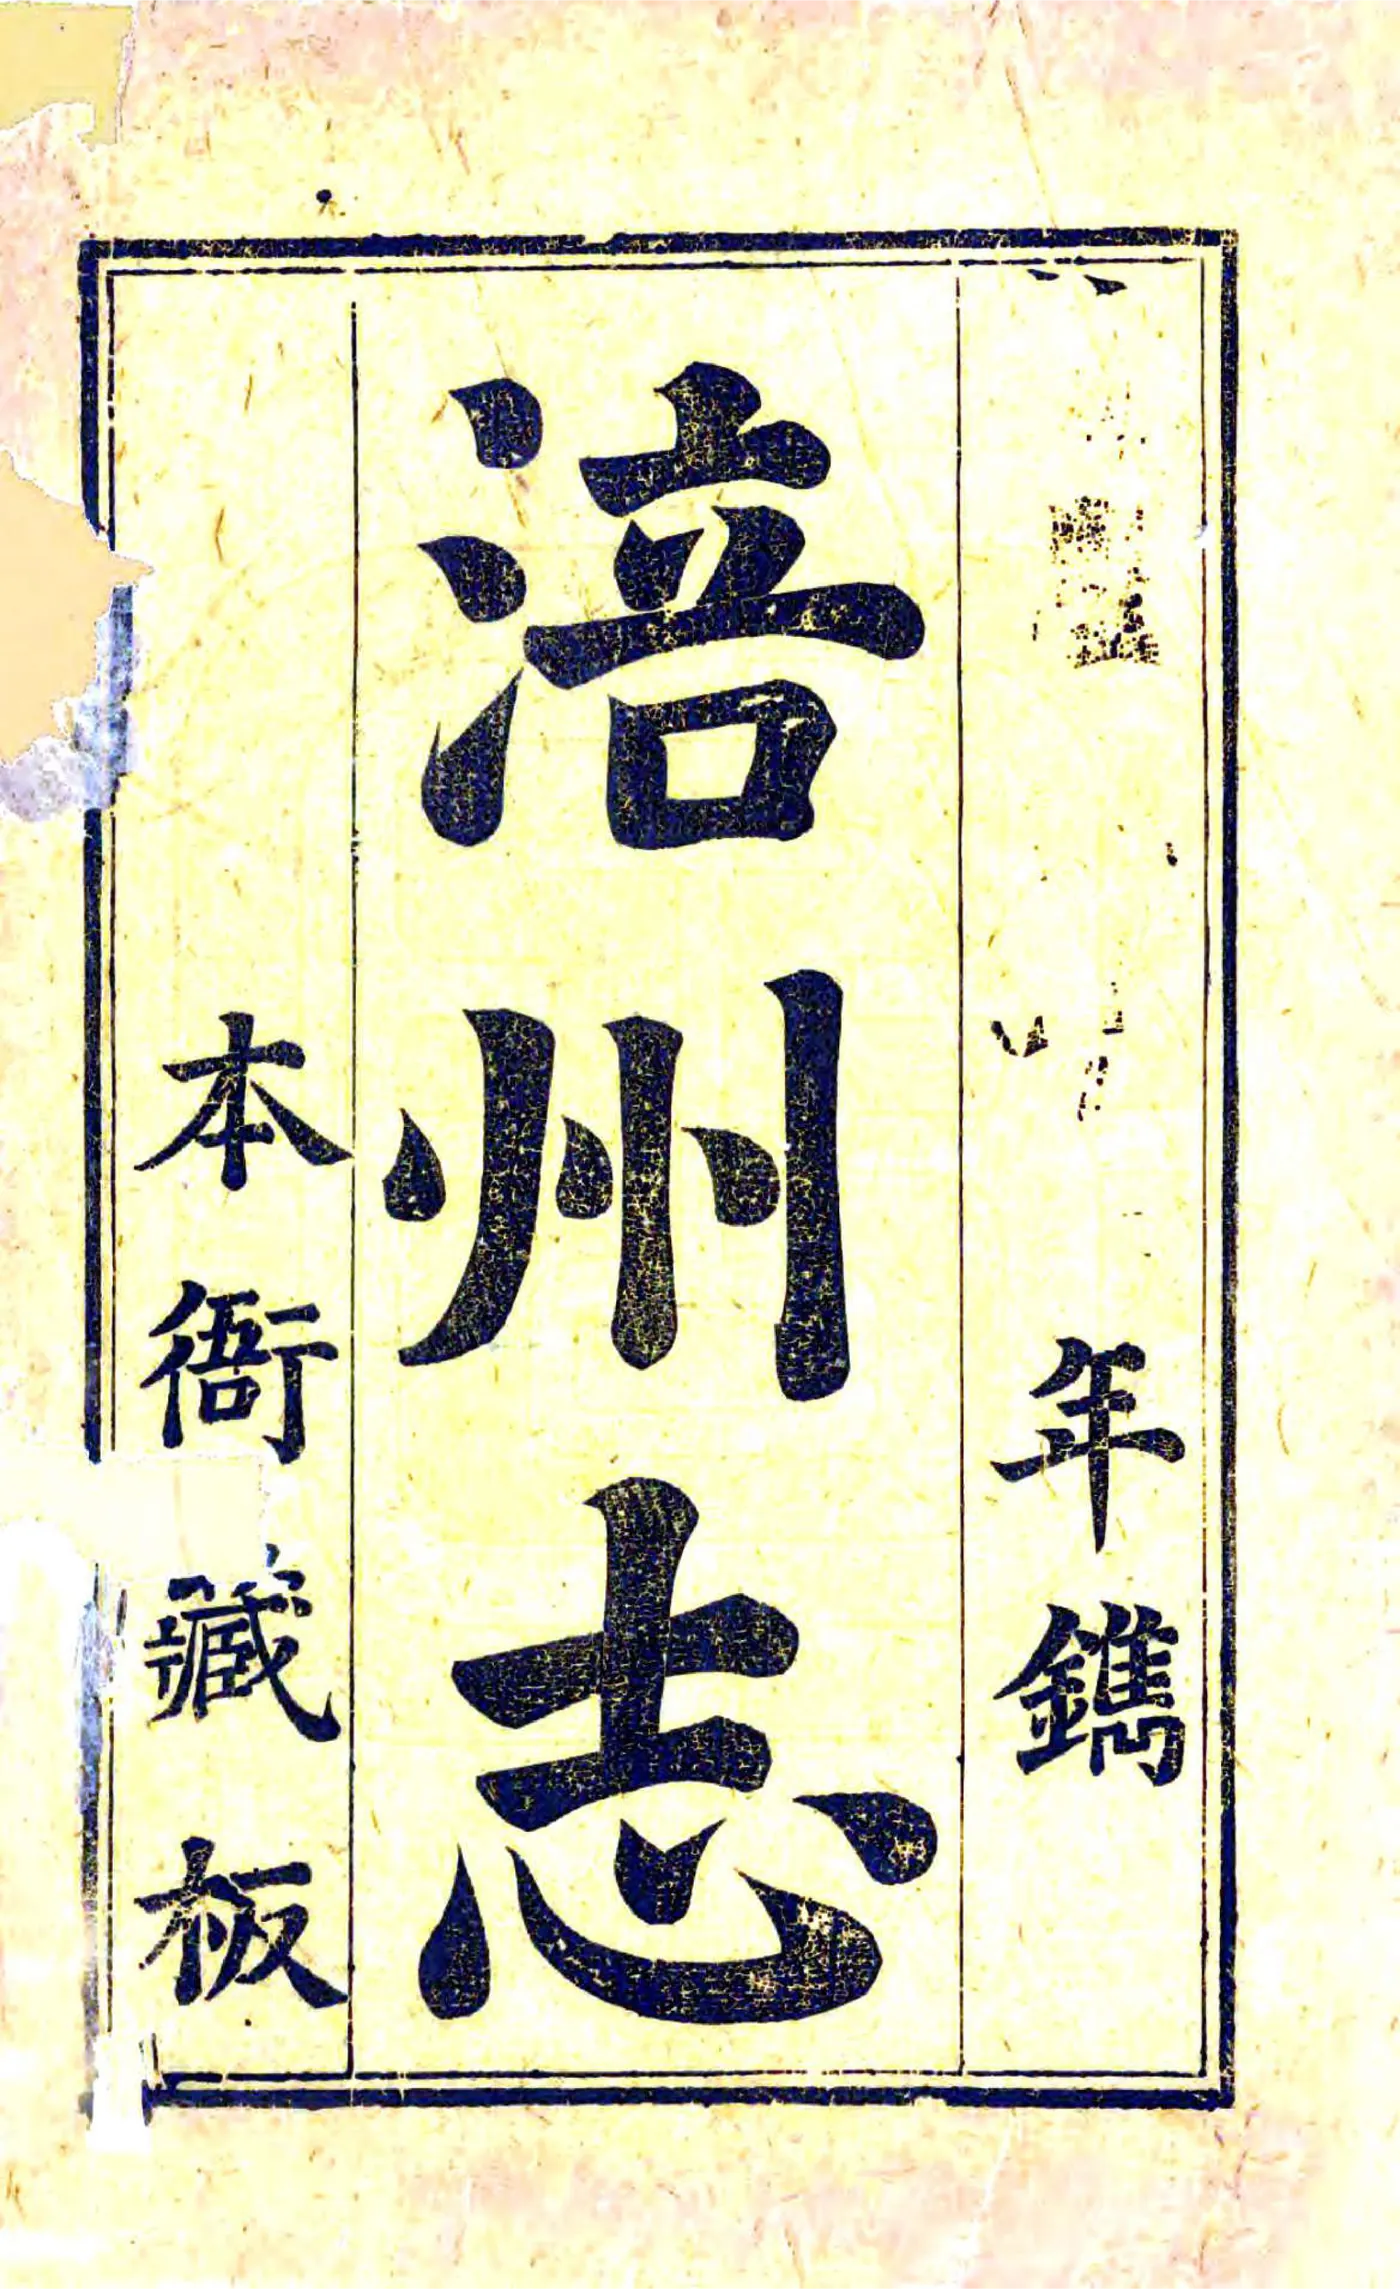 年鐫
涪州志
本衙藏板